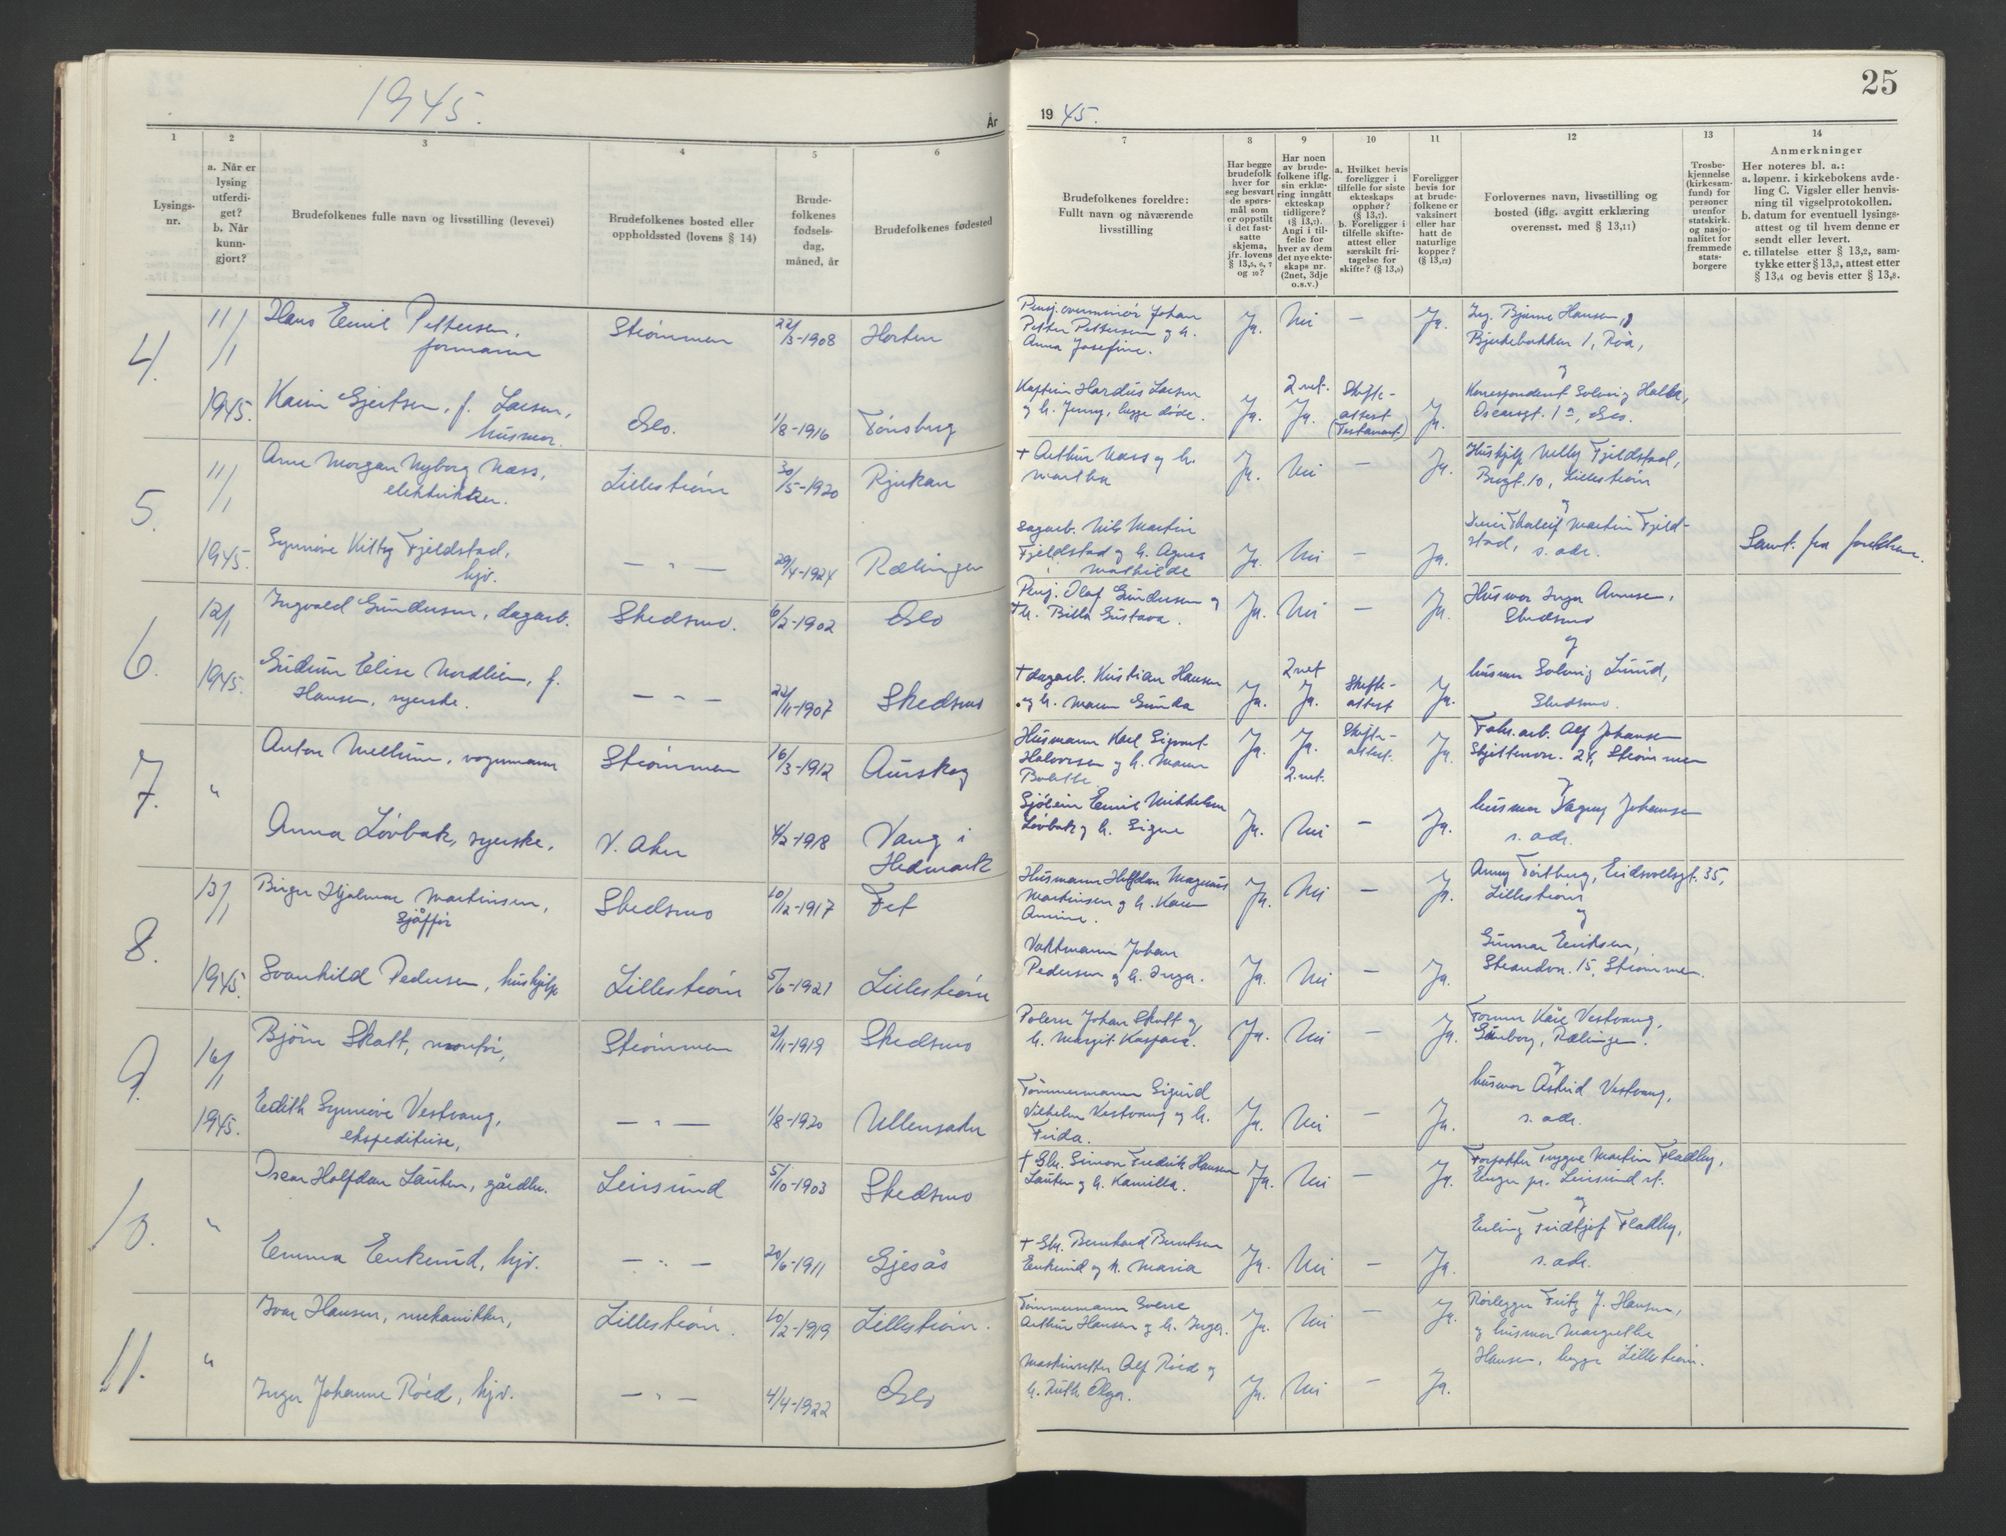 1945.
År
1
2
3
4
5
6
Lysings-
nr.
a. Når er
lysing
utferdi-
get?
b. Når
kunn-
gjort?
Brudefolkenes fulle navn og livsstilling (levevei)
Brudefolkenes bosted eller
oppholdssted (lovens § 14)
Brude-
folkenes
fødsels-
dag,
måned, år
Brudefolkenes fødested
4.
11/1
1945.
Hans Emil Pettersen,
formann
Strømmen
22/3-1908
Horten
Karin Gjertsen, f. Larsen,
husmor.
Oslo.
1/8-1916
Tønsberg
5.
11/1
1945.
Arne Morgan Nyborg Næss,
elektriker.
Lillestrøm
30/5-1920
Rjukan
Synnøve Kitty Fjeldstad,
hjv.
— " —
29/4-1924
Rælingen
6.
12/1
1945.
Ingvald Gundersen, dagarb.
Skedsmo.
6/2-1902
Oslo
Gudrun Elise Nordlien, f.
Hansen, syerske.
— " —
22/11-1907
Skedsmo
7.
"
Anton Mellum, vognmann
Strømmen
16/3-1912
Aurskog
Anna Løvbak, syerske,
V. Aker
4/2-1918
Vang i
Hedmark
8.
13/1
1945.
Birger Hjalmar Martinsen,
sjåfør
Skedsmo
10/12-1917
Fet
Svanhild Pedersen, hushjelp
Lillestrøm
5/6-1921
Lillestrøm
9.
16/1
1945.
Bjørn Skatt, montør,
Strømmen
2/11-1919
Skedsmo
Edith Synnøve Vestvang,
ekspeditrise,
— " —
1/8-1920
Ullensaker
10.
"
Oscar Halfdan Lauten, gårdbr.
Leirsund
5/10-1903
Skedsmo
Emma Enkerud, hjv.
— " —
20/6-1911
Gjesås
11.
"
Ivar Hansen, mekaniker,
Lillestrøm.
10/2-1919
Lillestrøm.
Inger Johanne Røed, hjv.
— " —
4/4-1922
Oslo
25
19 45.
7
8
9
10
11
12
13
14
Brudefolkenes foreldre:
Fullt navn og nåværende
livsstilling
Har begge
brudefolk
hver for
seg besvart
de spørs-
mål som
er oppstilt
i det fast-
satte
skjema,
jfr. lovens
§ 13,5, 6, 7
og 10?
Har noen
av brude-
folkene iflg.
sin erklæ-
ring inngått
ekteskap
tidligere?
(§ 13,7)
Angi i til-
felle for
hver av dem
det nye ekte-
skaps nr.
(2net, 3dje
o.s.v.)
a. Hvilket bevis
foreligger i
tilfelle for siste
ekteskaps
opphør?
(§ 13,7).
b. Foreligger i
tilfelle skifte-
attest eller
særskilt fri-
tagelse for
skifte? (§ 13,9)
Foreligger
bevis for
at brude-
folkene er
vaksinert
eller har
hatt de
naturlige
kopper?
(§ 13,12)
Forlovernes navn, livsstilling og
bosted (iflg. avgitt erklæring
overensst. med § 13,11)
Trosbe-
kjennelse
(kirkesam-
fund) for
personer
utenfor
statskirk.
og nasjo-
nalitet for
fremmede
stats-
borgere
Anmerkninger
Her noteres bl. a.:
a. løpenr. i kirkebokens avde-
ling C. Vigsler eller henvis-
ning til vigselprotokollen.
b. datum for eventuell lysings-
attest og til hvem denne er
sendt eller levert.
c. tillatelse etter § 13,2, sam-
tykke etter § 13,3, attest etter
§ 13,4 og bevis etter § 13,8.
Pensj. overminør Johan
Petter Pettersen og h.
Anna Josefine.
Ja.
Nei
—
Ja.
Ing. Bjarne Hansen,
Bjerkebakken 1, Røa,
og
Kaptein Hardus Larsen
og h. Jenny, begge døde.
Ja.
2. net.
Ja.
Skifte-
attest
(Testament)
Ja.
Korrespondent Solveig Holte,
Oscarsgt. 1 a, Oslo.
+ Arthur Næss og h.
Martha
Ja.
Nei
—
Ja.
Hushjelp Nelly Fjeldstad,
Brugt. 10, Lillestrøm
og
Sagarb. Nils Martin
Fjeldstad og h. Agnes
Mathilde
Ja.
Nei
—
Ja.
Thorleif Martin Fjeld-
stad, s. adr.
Samt. fra foreldrene.
Pensj. Olaf Gundersen og
+ h. Billa Gustava.
Ja.
Nei
—
Ja.
Husmor Inga Arnesen,
Skedsmo
og
+ dagarb. Kristian Hansen
og h. Maren Gunda
Ja.
2. net
Ja.
Skifte-
attest
Ja.
husmor Solveig Lund,
Skedsmo.
Husmann Karl Sigvart
Halvorsen og h. Maren
Bolette
Ja.
Ja.
2. net.
Skifte-
attest.
Ja.
Fabr.arb. Alf Johansen
Skjettenvn. 24, Strømmen
og
Emil Mikkelsen
Løvbak og h. Signe
Ja.
Nei
—
Ja.
husmor Dagny Johansen
s. adr.
Husmann Halfdan Magnus
Martinsen og h. Karen
Amine.
Ja.
Nei
—
Ja.
Anny Tørtberg, Eidsvollsgt. 35,
Lillestrøm
og
Vaktmann Johan
Pedersen og h. Inga.
Ja.
Nei
—
Ja.
Gunnar Eriksen,
Strandvn. 15, Strømmen.
Polerer Johan Skatt og
h. Margit Kaspara.
Ja.
Nei
—
Ja.
Former Kåre Vestvang,
Rælingen.
og
Tømmermann Sigurd
Vilhelm Vestvang og h.
Frida.
Ja.
Nei
—
Ja.
husmor Astrid Vestvang,
s. adr.
+ Gbr. Simon Fredrik Hansen
Lauten og h. Kamilla.
Ja.
Nei
—
Ja.
Forpakter Trygve Martin Fladby,
Enger pr. Leirsund st.
og
+ Gbr. Bernhard Berntsen
Enkerud og h. Maria
Ja.
Nei
—
Ja.
Erling Fridtjof Fladby,
s. adr.
Tømmermann Sverre
Arthur Hansen og h. Inga.
Ja.
Nei
—
Ja.
Rørlegger Fritz J. Hansen,
og husmor Margrethe
Hansen, begge Lillestrøm.
Maskinsetter Alf Røed og
h. Ruth Olga.
Ja.
Nei
—
Ja.